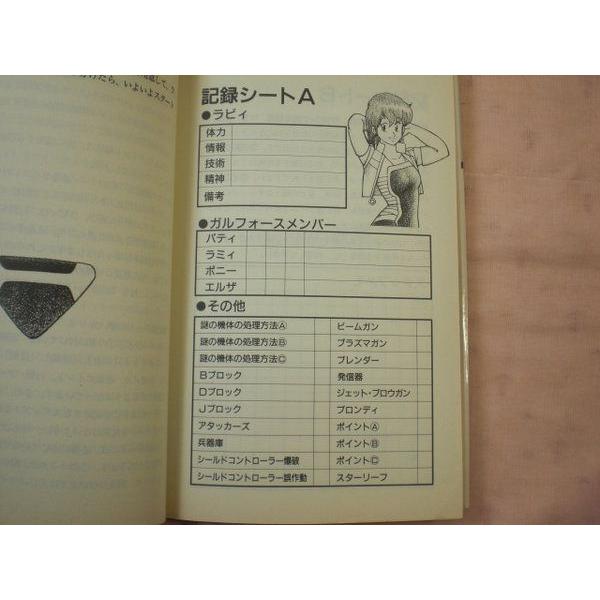 いよいよスター
記録シートA
●ラビィ
体力
情報
技術
精神
備考
●ガルフォースメンバー
パティ
ラミィ
ポニー
エルザ
●その他
謎の機体の処理方法Ⓐ ビームガン
謎の機体の処理方法Ⓑ プラズマガン
謎の機体の処理方法Ⓒ ブレンダー
Bブロック 発信器
Dブロック ジェット・ブロウガン
Jブロック ブロンディ
アタッカーズ ポイントⒶ
兵器庫 ポイントⒷ
シールドコントローラー爆破 ポイントⒸ
シールドコントローラー誤作動 スターリーフ